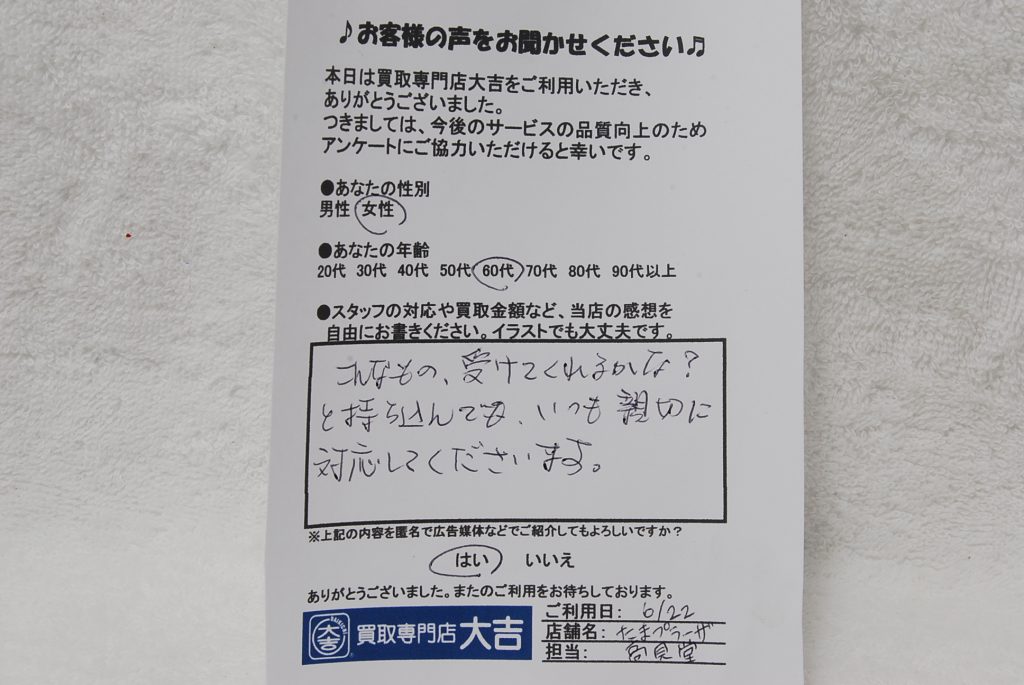 ♪お客様の声をお聞かせください♫
本日は買取専門店大吉をご利用いただき、
ありがとうございました。
つきましては、今後のサービスの品質向上のため
アンケートにご協力いただけると幸いです。
●あなたの性別
男性 女性
●あなたの年齢
20代 30代 40代 50代 60代 70代 80代 90代以上
●スタッフの対応や買取金額など、当店の感想を
自由にお書きください。イラストでも大丈夫です。
こんなもの、受けてくれるかな?
と持ち込んでも、いつも親切に
対応してくださいます。
※上記の内容を匿名で広告媒体などでご紹介してもよろしいですか?
はい いいえ
ありがとうございました。またのご利用をお待ちしております。
大吉 買取専門店 大吉
ご利用日: 6/22
店舗名: たまプラーザ
担当: